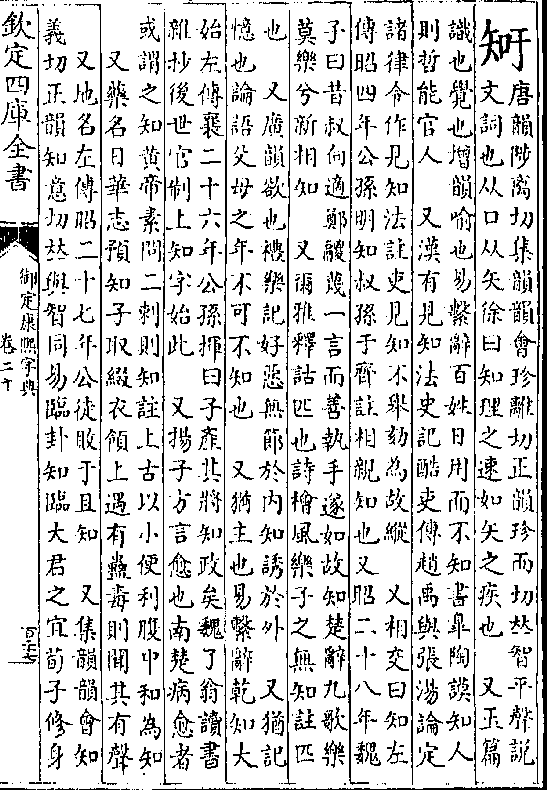 知 𢇻 唐韻陟离切集韻韻會珍離切正韻珍而切𠀤智平聲說
文詞也从口从矢徐曰知理之速如矢之疾也 又玉篇
識也覺也增韻喻也易繫辭百姓日用而不知書臯陶謨知人
則哲能官人 又漢有見知法史記酷吏傳趙禹與張湯論定
諸律令作見知法註吏見知不舉劾為故縱 又相交曰知左
傳昭四年公孫明知叔孫于齊註相親知也又昭二十八年魏
子曰昔叔向適鄭鬷蔑一言而善執手遂如故知楚辭九歌樂
莫樂兮新相知 又爾雅釋詁匹也詩檜風樂子之無知註匹
也 又廣韻欲也禮樂記好惡無節於內知誘於外 又猶記
憶也論語父母之年不可不知也 又猶主也易繫辭乾知大
始左傳襄二十六年公孫揮曰子產其將知政矣魏了翁讀書
雜抄後世官制上知字始此 又揚子方言愈也南楚病愈者
或謂之知黃帝素問二刺則知註上古以小便利腹中和為知
又藥名日華志預知子取綴衣領上遇有蠱毒則聞其有聲
又地名左傳昭二十七年公徒敗于且知 又集韻韻會知
義切正韻知意切𠀤與智同易臨卦知臨大君之宜荀子修身
欽定四庫全書
御定康熙字典
卷二十